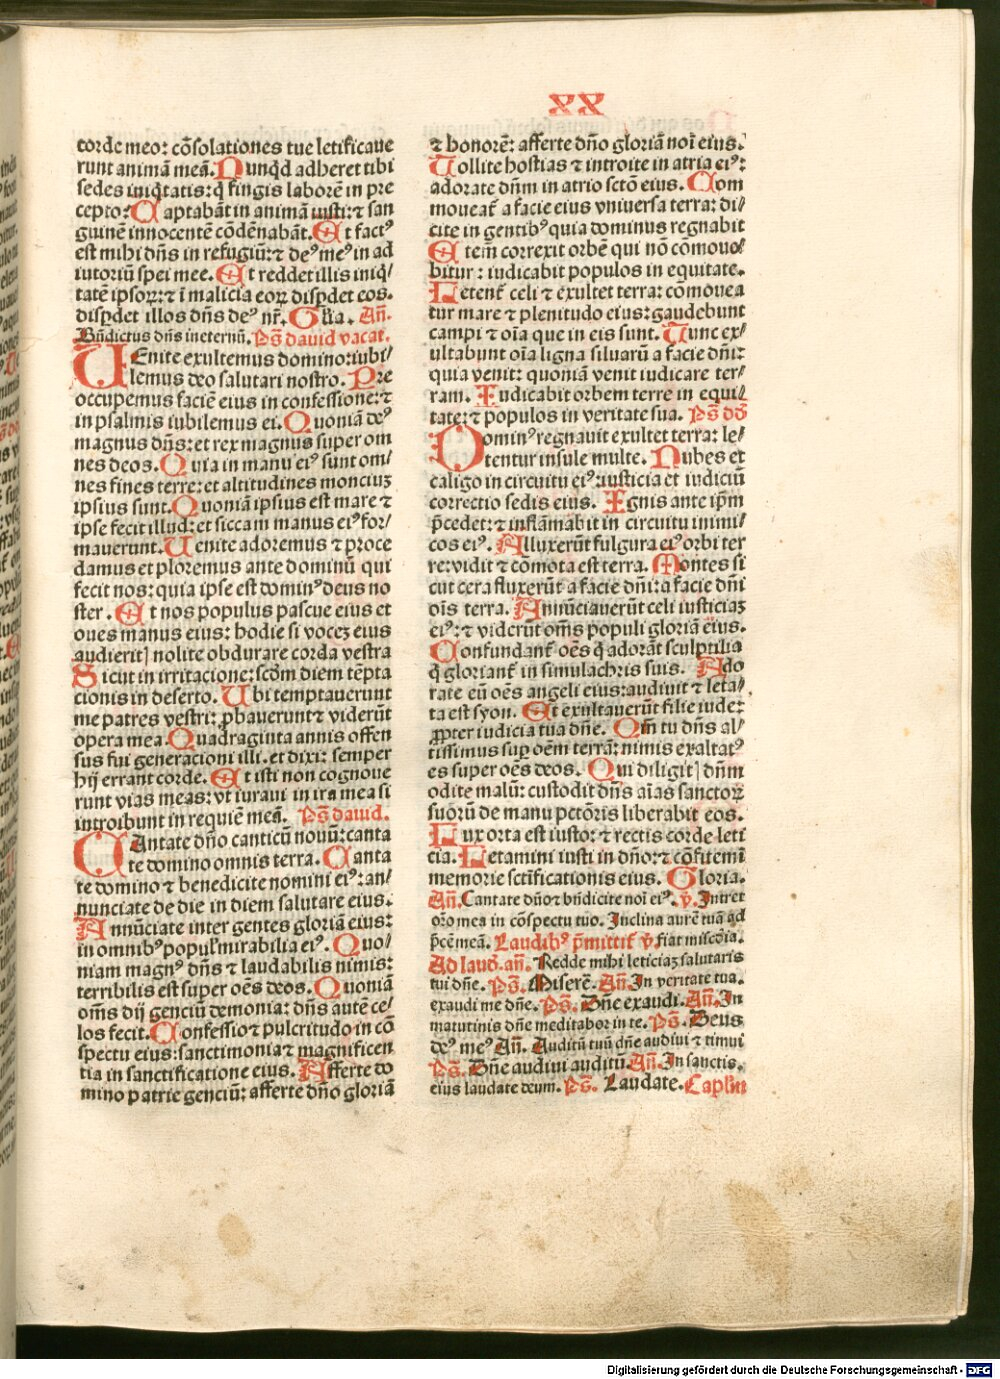 XX
corde meo: cōsolationes tue letificaue
runt animā meā. Nunq̄d adheret tibi
sedes iniq̄tatis: q̄ fingis laborē in pre
cepto? Captabāt in animā iusti: ⁊ san
guinē innocentē cōdēnabāt. Et factꝰ
est mihi dn̄s in refugiū: ⁊ deꝰ meꝰ in ad
iutoriū spei mee. Et reddet illis iniq̄/
tatē ipsoꝝ: ⁊ ī malicia eoꝝ disꝑdet eos.
disꝑdet illos dn̄s deꝰ nr̄. Gl̄ia. Añ.
Bn̄dictus dn̄s ineternū. Ps̄ dauid vacat.
UEnite exultemus domino: iubi/
lemus deo salutari nostro. Pre
occupemus faciē eius in confessione: ⁊
in psalmis iubilemus ei. Quoniā deꝰ
magnus dn̄s: et rex magnus super om
nes deos. Quia in manu eiꝰ sunt om/
nes fines terre: et altitudines monciuꝫ
ipsius sunt. Quoniā ipsius est mare ⁊
ipse fecit illud: et siccam manus eiꝰ for/
mauerunt. Uenite adoremus ⁊ proce
damus et ploremus ante dominū qui
fecit nos: quia ipse est dominꝰ deus no
ster. Et nos populus pascue eius et
oues manus eius: hodie si voceꝫ eius
audierit] nolite obdurare corda vestra
Sicut in irritacione: scd̄m diem tēpta
cionis in deserto. Ubi temptauerunt
me patres vestri: ꝓbauerunt ⁊ viderūt
opera mea. Quadraginta annis offen
sus fui generacioni illi. et dixi: semper
hij errant corde. Et isti non cognoue
runt vias meas: vt iuraui in ira mea si
introibunt in requiē meā. Ps̄ dauid.
CAntate dn̄o canticū nouū: canta
te domino omnis terra. Canta
te domino ⁊ benedicite nomini eiꝰ: an/
nunciate de die in diem salutare eius.
Annūciate inter gentes gloriā eius:
in omnibꝰ populꝰ mirabilia eiꝰ. Quo/
niam magnꝰ dn̄s ⁊ laudabilis nimis:
terribilis est super oēs deos. Quoniā
om̄s dij genciū demonia: dn̄s autē ce/
los fecit. Confessio ⁊ pulcritudo in cō
spectu eius: sanctimonia ⁊ magnificen
tia in sanctificatione eius. Afferte do
mino patrie genciū: afferte dn̄o gloriā
⁊ honorē: afferte dn̄o gloriā noī eius.
Tollite hostias ⁊ introite in atria eiꝰ:
adorate dn̄m in atrio sctō eius. Com
moueat̄ a facie eius vniuersa terra: di/
cite in gentibꝰ quia dominus regnabit
Etem̄ correxit orbē qui nō cōmoue
bitur: iudicabit populos in equitate.
Letent̄ celi ⁊ exultet terra: cōmouea
tur mare ⁊ plenitudo eius: gaudebunt
campi ⁊ oīa que in eis sunt. Tunc ex/
ultabunt oīa ligna siluarū a facie dn̄i:
quia venit: quoniā venit iudicare ter/
ram. Iudicabit orbem terre in equi/
tate: ⁊ populos in veritate sua. Ps̄ dd̄
Dominꝰ regnauit exultet terra: le/
tentur insule multe. Nubes et
caligo in circuitu eiꝰ: iusticia et iudiciū
correctio sedis eius. Ignis ante ip̄m
p̄cedet: ⁊ inflāmabit in circuitu inimi/
cos eiꝰ. Alluxerūt fulgura eiꝰ orbi ter
re: vidit ⁊ cōmota est terra. Montes si
cut cera fluxerūt a facie dn̄i: a facie dn̄i
oīs terra. Annūciauerūt celi iusticiaꝫ
eiꝰ: ⁊ viderūt om̄s populi gloriā eius.
Confundant̄ oēs q̄ adorāt sculptilia
q̄ gloriant̄ in simulachris suis. Ado
rate eū oēs angeli eius: audiuit ⁊ leta/
ta est syon. Et exultauerūt filie iude:
ꝓpter iudicia tua dn̄e. Qm̄ tu dn̄s al/
tissimus suꝑ oēm terrā: nimis exaltatꝰ
es super oēs deos. Qui diligit] dn̄m
odite malū: custodit dn̄s aīas sanctoꝝ
suorū de manu pctōris liberabit eos.
Lux orta est iusto: ⁊ rectis corde leti
cia. Letamini iusti in dn̄o: ⁊ cōfitemī
memorie sctīficationis eius. Gloria.
Añ. Cantate dn̄o ⁊ bn̄dicite noī eiꝰ. v̄. Intret
or̄o mea in cōspectu tuo. Inclina aurē tuā ad
p̄cē meā. Laudibꝰ p̄mittit̄ v̄. fiat misc̄dia.
Ad laud. añ. Redde mihi leticiaꝫ salutaris
tui dn̄e. Ps̄. Miserē. Añ. In veritate tua.
exaudi me dn̄e. Ps̄. Dn̄e exaudi. Añ. In
matutinis dn̄e meditabor in te. Ps̄. Deus
deꝰ meꝰ Añ. Auditū tuū dn̄e audiui ⁊ timui
Ps̄. Dn̄e audiui auditū Añ. In sanctis.
eius laudate deum. Ps̄. Laudate. Capl̄m
Digitalisierung gefördert durch die Deutsche Forschungsgemeinschaft - DFG